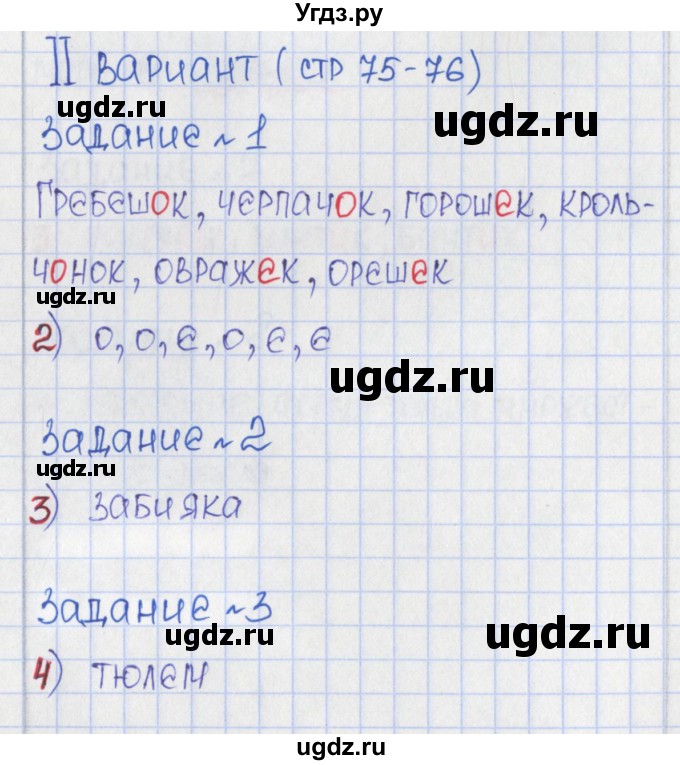 Угдз.ру
II вариант ( стр 75-76)
Задание ~ 1
ugdz.ru
Гребешок, черпачок, горошек, кроль-
чонок, овражек, орешек
ugdz.ru
2) о, о, е, о, е, е
ugdz.ru
Задание ~ 2
ugdz.ru
3) забияка
Задание ~ 3
ugdz.ru
ugdz.ru
4) тюлем
ugdz.ru